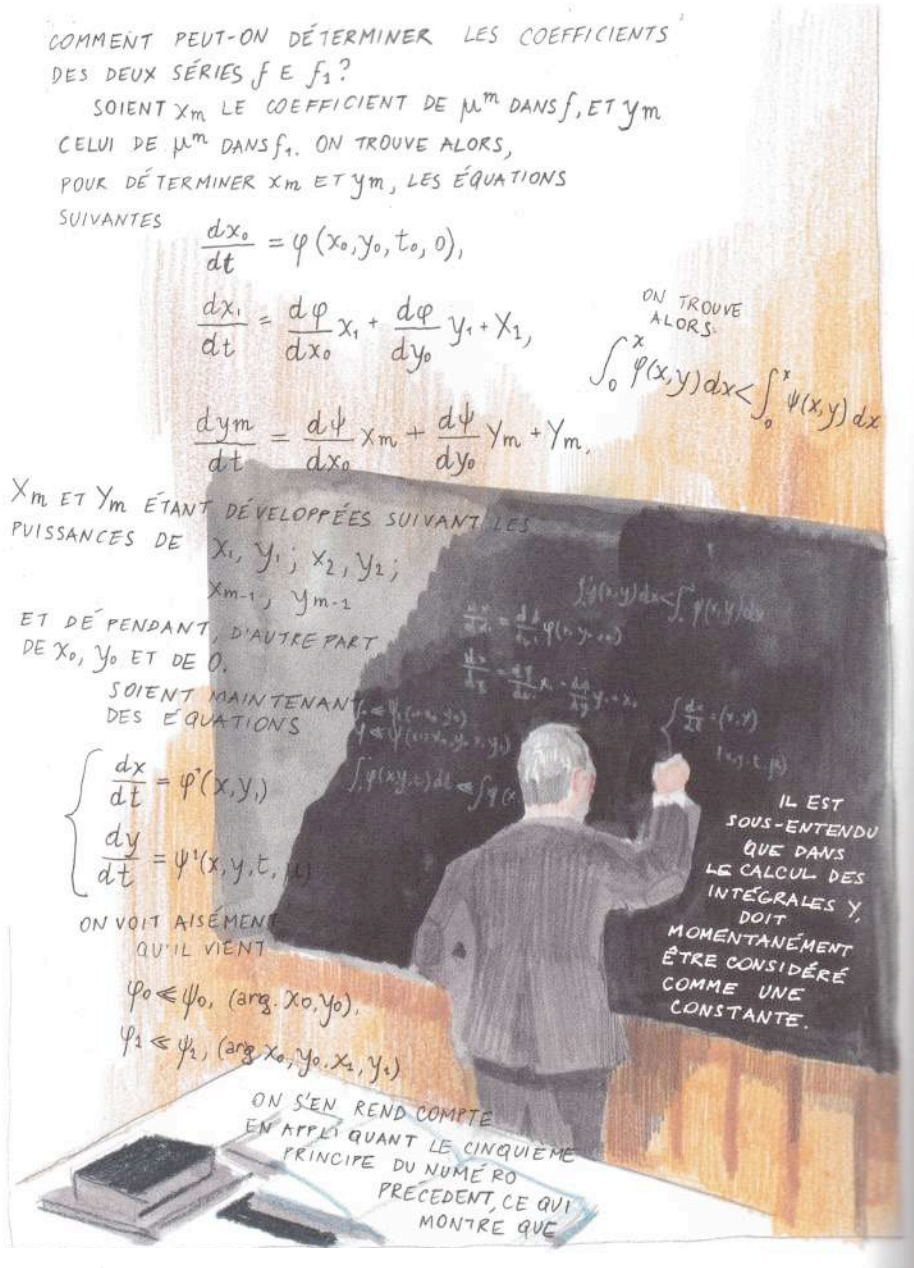 COMMENT PEUT-ON DÉTERMINER LES COEFFICIENTS
DES DEUX SÉRIES f E f₁?
SOIENT Xm LE COEFFICIENT DE μᵐ DANS f, ET ym
CELUI DE μᵐ DANS f₁. ON TROUVE ALORS,
POUR DÉTERMINER Xm ET ym, LES ÉQUATIONS
SUIVANTES
dx₀/dt = φ (x₀, y₀, t₀, 0),
dx₁/dt = dφ/dx₀ x₁ + dφ/dy₀ y₁ + X₁,
ON TROUVE
ALORS:
∫₀ˣ φ(x,y)dx < ∫₀ˣ ψ(x,y)dx
dym/dt = dψ/dx₀ Xm + dψ/dy₀ Ym + Ym,
Xm ET Ym ÉTANT DÉVELOPPÉES SUIVANT LES
PUISSANCES DE
X₁, Y₁; X₂, Y₂;
Xm-1, Ym-1
ET DÉPENDANT, D'AUTRE PART
DE X₀, Y₀ ET DE 0.
SOIENT MAINTENANT
DES ÉQUATIONS
dx/dt = φ'(x,y,)
dy/dt = ψ'(x,y,t,μ)
ON VOIT AISÉMENT
QU'IL VIENT
φ₀ ≪ ψ₀, (arg. X₀, Y₀),
φ₁ ≪ ψ₁, (arg X₀, Y₀, X₁, Y₁)
ON S'EN REND COMPTE
EN APPLIQUANT LE CINQUIÈME
PRINCIPE DU NUMÉRO
PRECEDENT, CE QUI
MONTRE QUE
IL EST
SOUS-ENTENDU
QUE DANS
LE CALCUL DES
INTÉGRALES Y,
DOIT
MOMENTANÉMENT
ÊTRE CONSIDÉRÉ
COMME UNE
CONSTANTE.